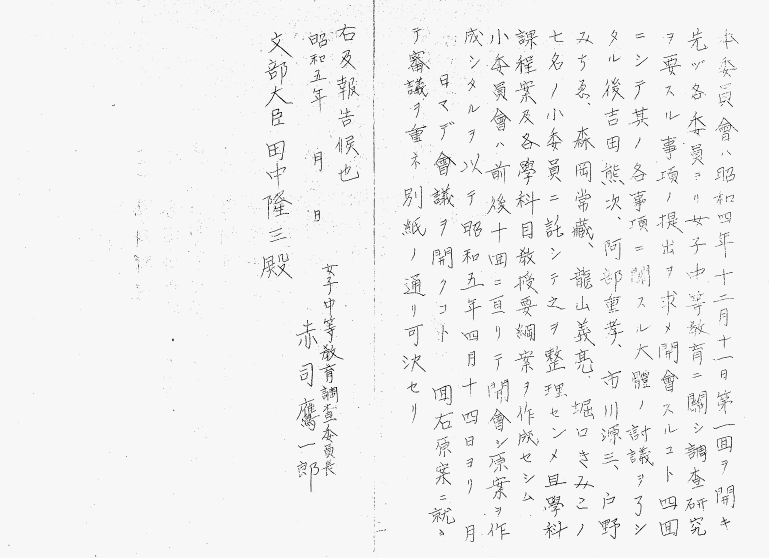 本委員會ハ昭和四年十二月十一日第一回ヲ開キ
先ヅ各委員ヨリ女子中等教育ニ關シ調査研究
ヲ要スル事項ノ提出ヲ求メ開會スルコト四回
ニシテ其ノ各事項ニ關スル大體ノ討議ヲ了シ
タル後吉田熊次、阿部重孝、市川源三、戸野
みちゑ、森岡常藏、龍山義亮、堀口きみこノ
七名ノ小委員ニ託シテ之ヲ整理センメ且學科
課程案及各學科目教授要綱案ヲ作成セシム
小委員會ハ前後十回ニ亘リテ開會シ原案ヲ作
成シタルヲ以テ昭和五年四月十四日ヨリ 月
日マデ會議ヲ開クコト 回右原案ニ就キ
テ審議ヲ重ネ別紙ノ通リ可決セリ
右及報告候也
昭和五年 月 日
女子中等教育調査委員長
赤司鷹一郎
文部大臣田中隆三殿